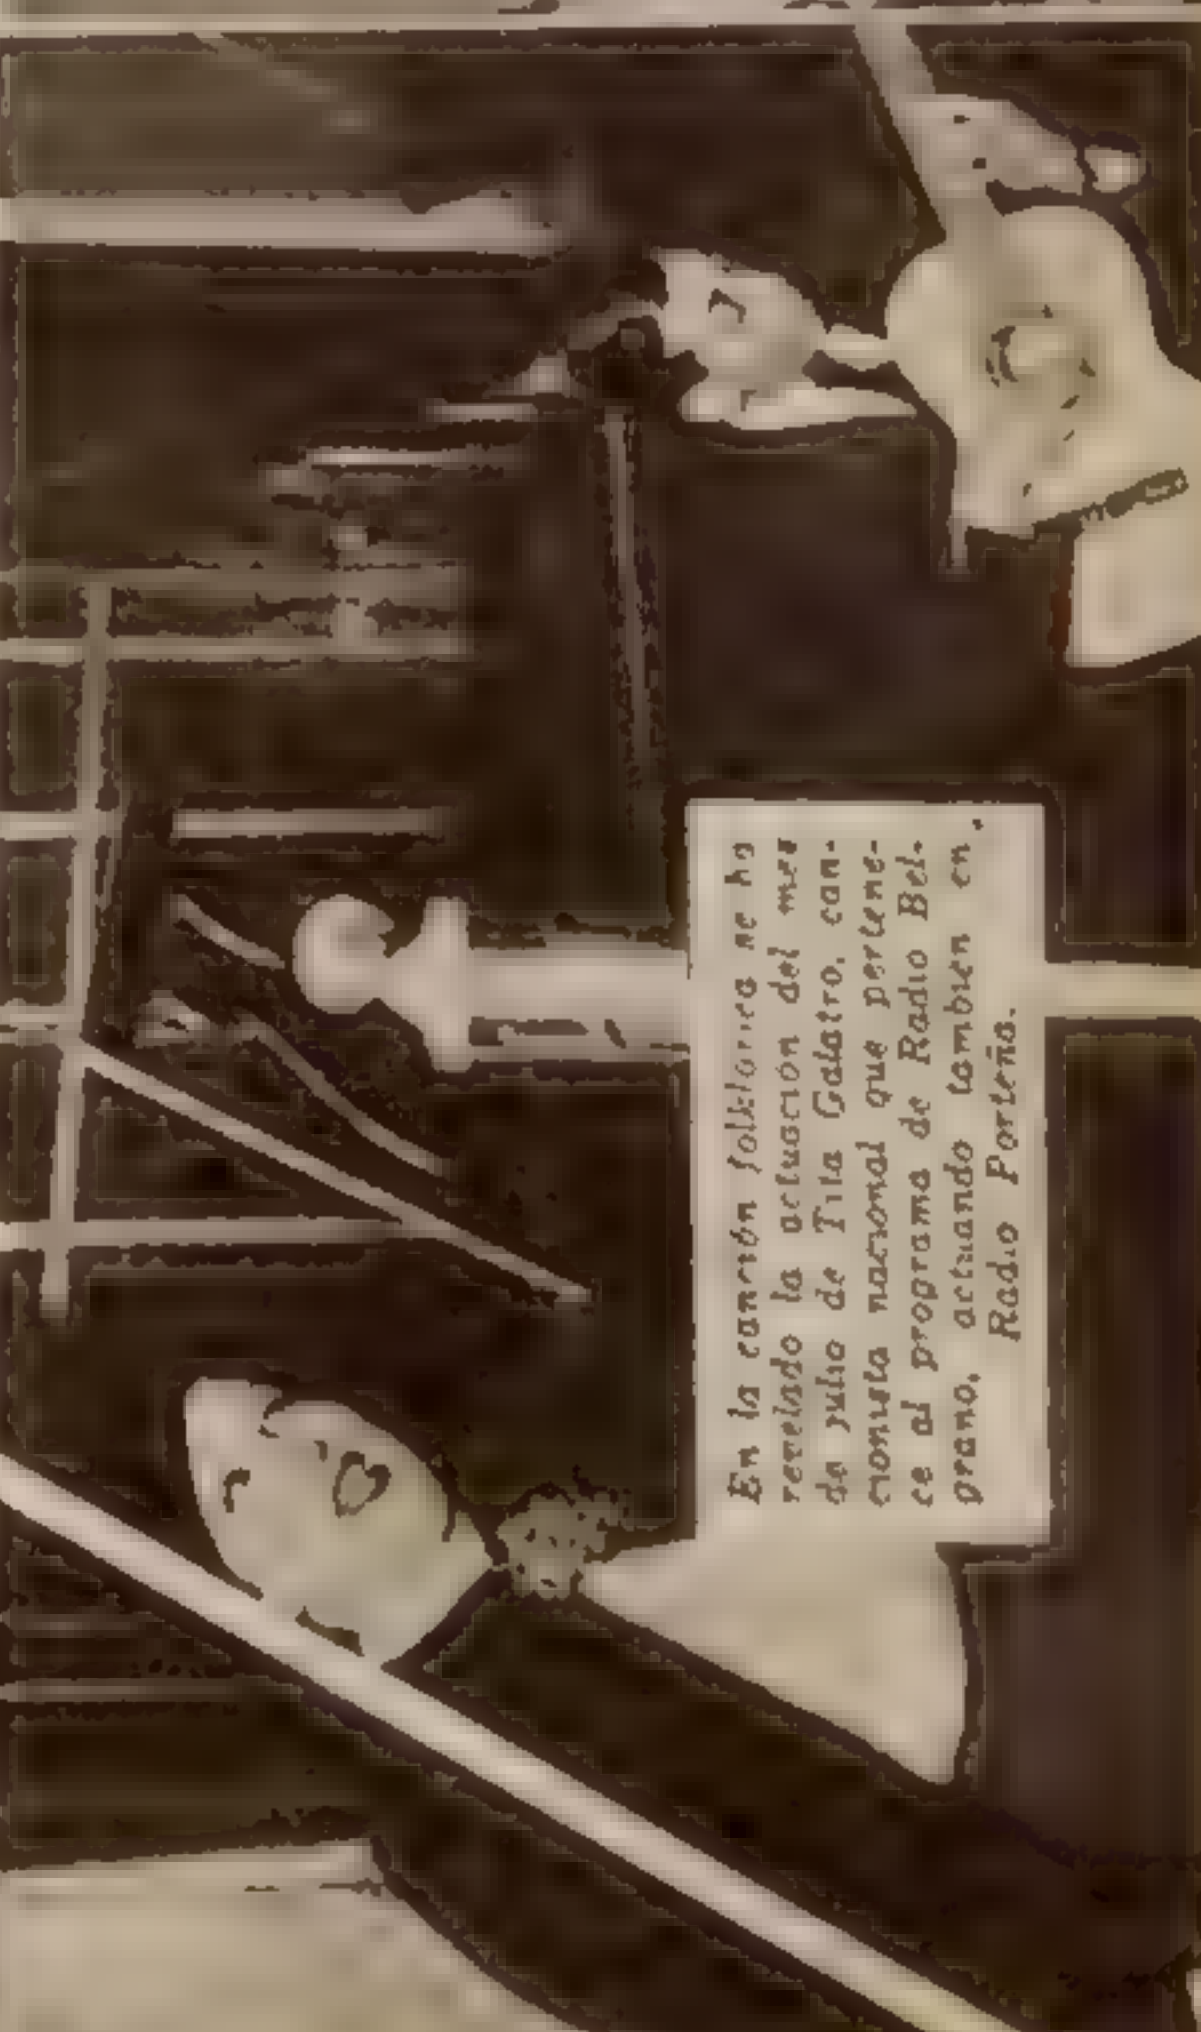 En la canción folklórica se ha
revelado la actuación del mes
de julio de Tita Galatro, can-
cionista nacional que pertene-
ce al programa de Radio Bel-
grano, actuando tambien en
Radio Porteña.